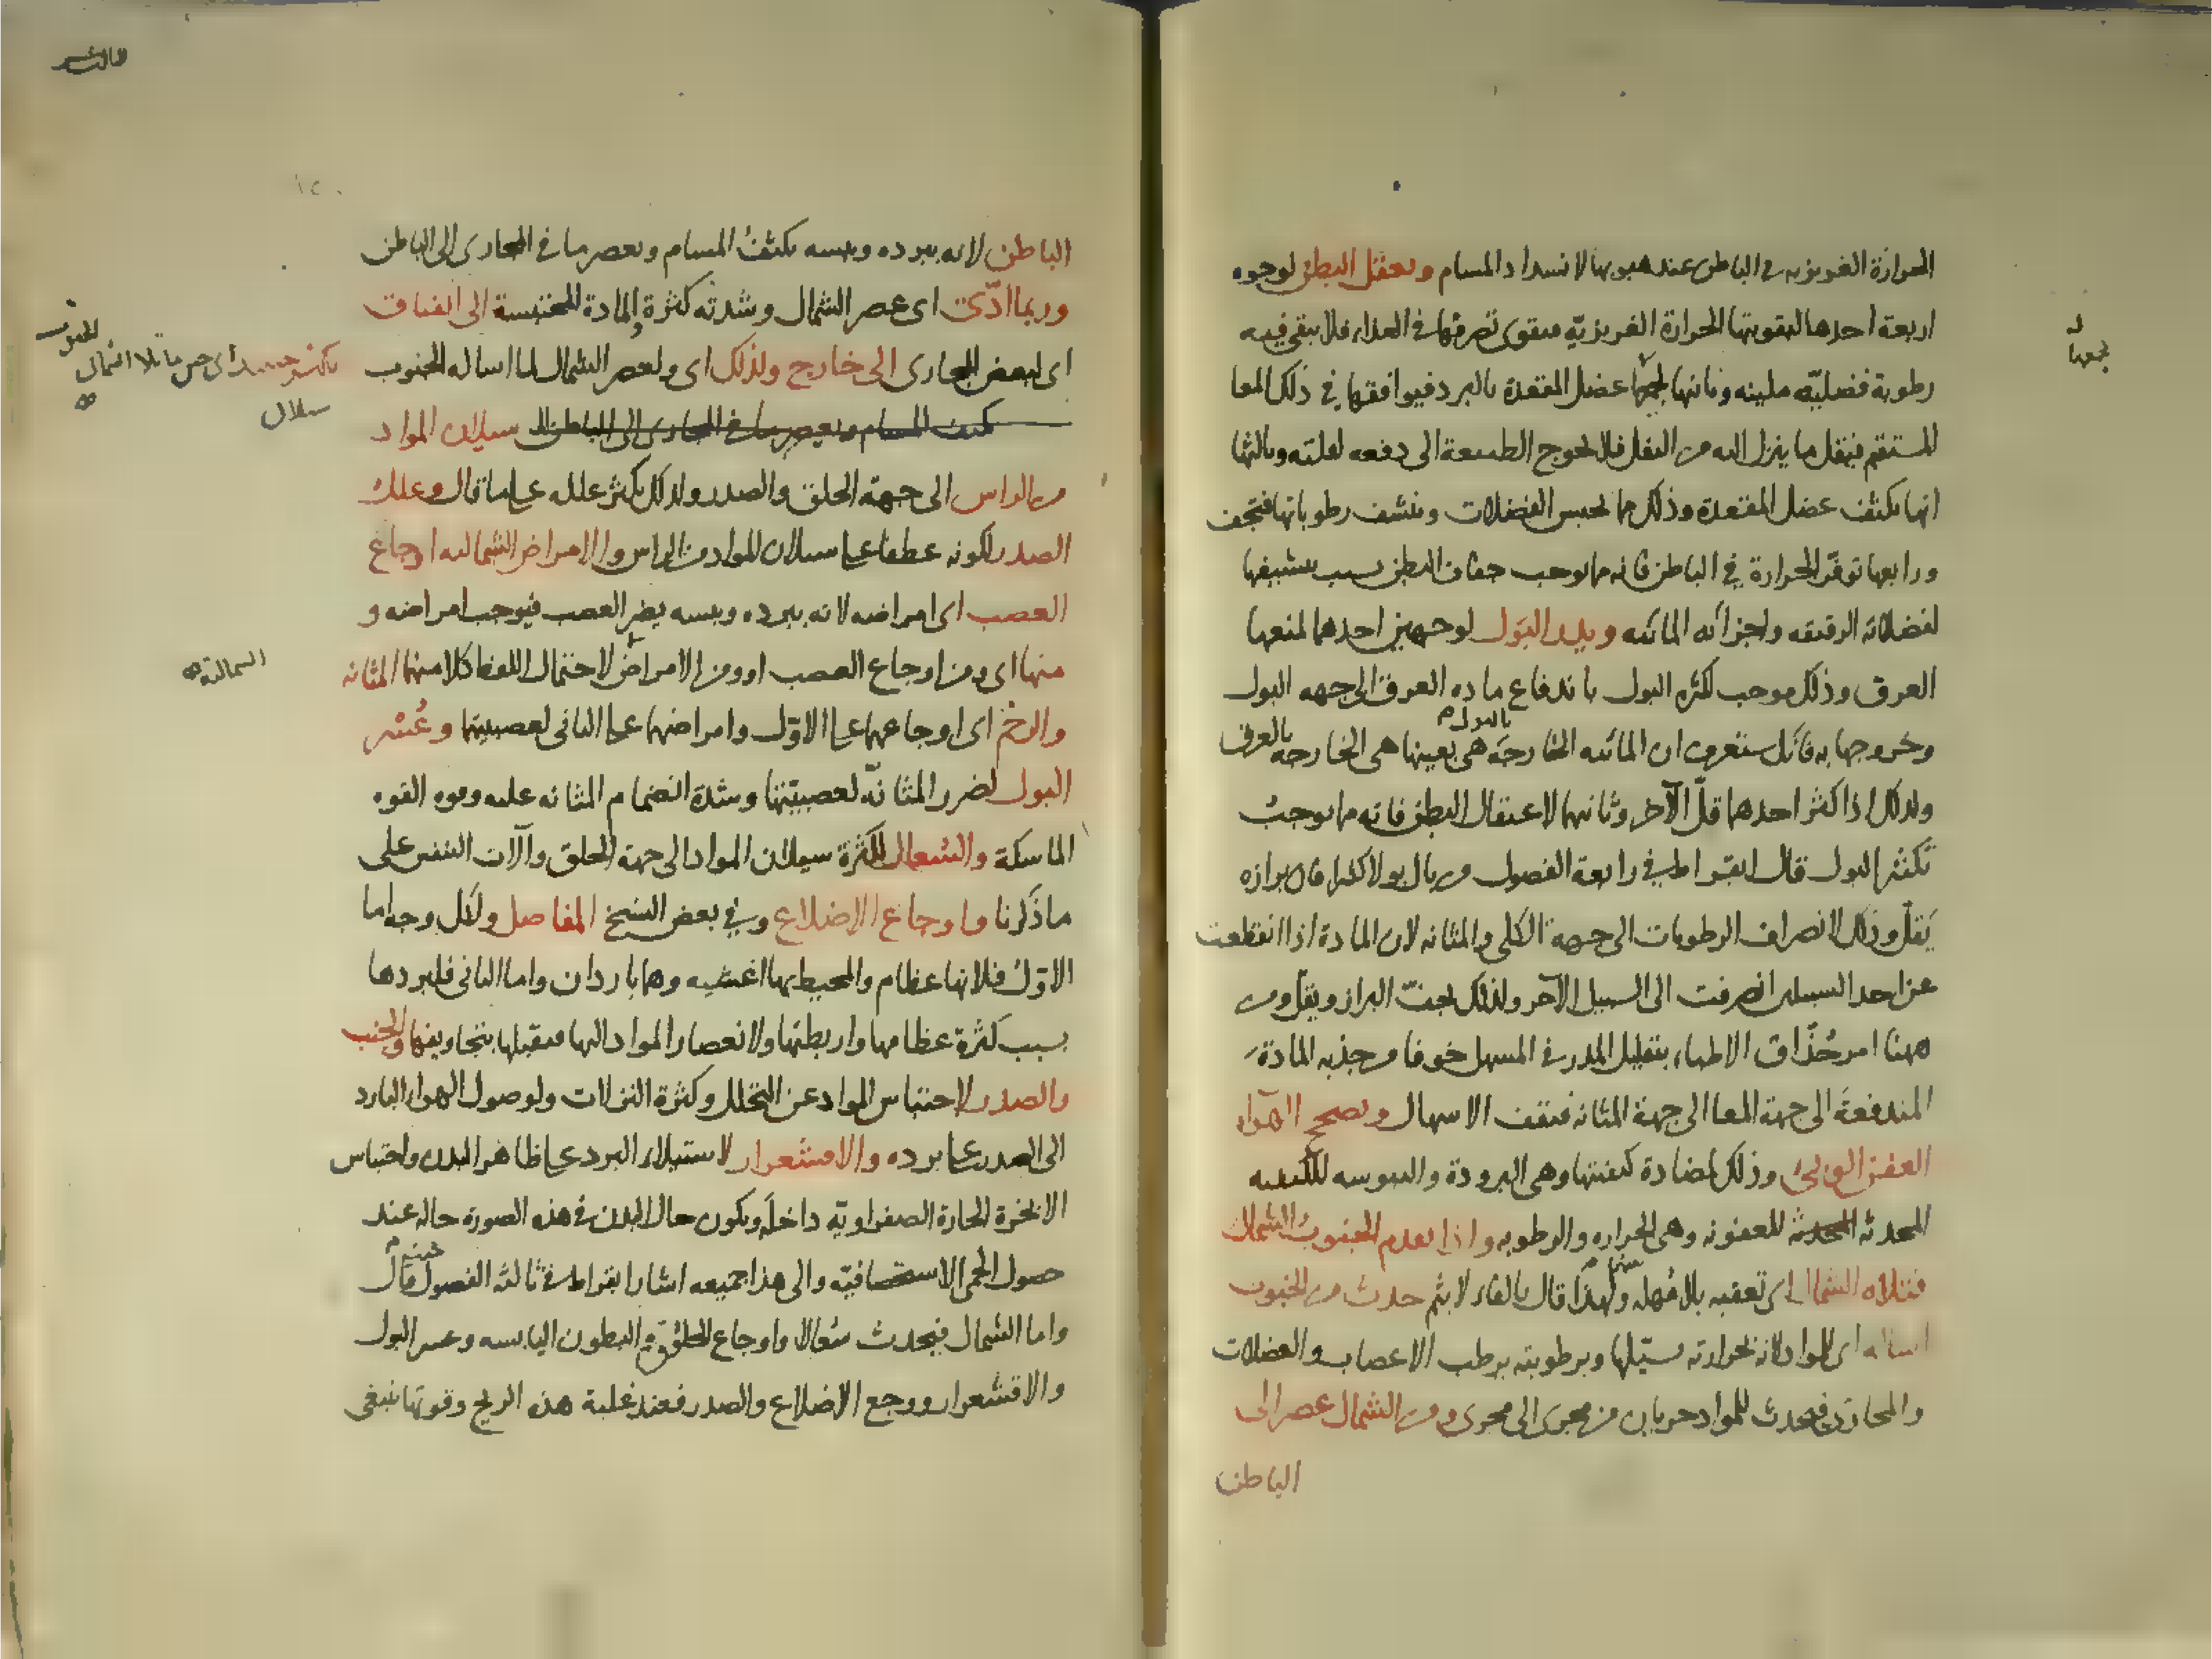 الحرارة الغريزيه في الباطن عند هبوبها لانسداد المسام وتعتقل البطن لوجوه
اربعة احدها لتقويتها الحرارة الغريزيّه فيقوى تصرفها في الغذاء فلا يبقى فيه
رطوبة فضليّه ملينه وثانيها لجمعها عضل المقعدة بالبرد فيوافقها في ذلك المعا
المستقيم فيقل ما ينزل اليه من الثفل فلا تحوج الطبيعة الى دفعه لقلته وثالثها
انها تكثف عضل المقعدة وذلك مما يحبس الفضلات وينشف رطوباتها فتجف
ورابعها توفّر الحرارة في الباطن فانه مما يوجب جفاف البطن بسبب تنشيفها
لفضلاته الرقيقه واجزائه المائيه ويدر البَول لوجهين احدهما لمنعها
العرق وذلك موجب لكثره البول باندفاع ماده العرق الى جهه البول
وخروجها به فانك ستعرف ان المائيه الخارجَه بالبول هي بعينها هي الخارجه بالعرق
ولذلك اذا كثر احدهما قلّ الآخر وثانيهما لاعتقال البطن فانه مما يوجبُ
تكثير البول قال ابقراط في رابعة الفصول من بال بولا كثيرا فان برازه
يَقلّ وذلك لانصراف الرطوبات الى جهة الكلى والمثانه لان المادة اذا انقطعت
عن احد السبيلين انصرفت الى السبيل الآخر ولذلك يجفّ البراز ويقلّ ومن
ههنا امر حُذّاق الاطباء بتقليل المدر في المسهل خوفا من جذبه المادة
المندفعَة الى جهة المعا الى جهة المثانه فيقف الاسهال وتصحح الهَواء
العفن الوبائى وذلك لمضادة كيفيتها وهي البرودة واليبوسه للكيفيه
المحدثه للعفونه وهي الحراره والرطوبه واذا تقدم الجنوبُ الشمال
فتلاه الشمال اى تعقبه بلا مُهله ولهذا قال بالفاء لا بثم حدث من الجنوب
اساله اى للمواد لانه بحرارته يسيّلها وبرطوبته يرطب الاعصاب والعضلات
والمجارى فيحدث للمواد جريان من مجرى الى مجرى ومن الشمال عصر الى
الباطن
الباطن لانه ببرده ويبسه يكثفُ المسام ويعصر ما في المجارى الى الباطن
وربما ادّى اى عصر الشمال وشدته كثرة المادة المحتبسة الى انفتاق
اى لبعض المجارى الى خارج ولذلك اى ولعصر الشمال لما اساله الجنوب
يكثر حينئذ
سيلان
سيلان المواد
من الراس الى جهة الحلق والصدر ولذلك يكثر علله على ما قال وعلل
الصدر لكونه عطفا على سيلان المواد من الراس والامراض الشماليه اوجاع
العصب اى امراضه لانه ببرده ويبسه يضر العصب فيوجب امراضه و
منها اى ومن اوجاع العصب او ومن الامراض لاحتمال اللفظ كلا منهما المثانه
الشمالية
والرحم اى اوجاعهما على الاوّل وامراضهما على الثانى لعصبيتها وعُسْر
البول لضرر المثانّه لعصبيّتها وشدة انضمام المثانه عليه وقوه القوه
الماسكة والسُعال لكثرة سيلان المواد الى جهة الحلق وآلات التنفس على
ما ذكرنا واوجاع الاضلاع وفي بعض النسخ المفاصل ولكل وجه اما
الاوّل فلانها عظام والمحيط بها اغشيه وهما باردان واما الثانى فلبردها
بسبب كثرة عظامها واربطتها ولانعصار المواد اليها فيقبلها بتجاويفها والجنب
والصدر لاحتباس المواد عن التحلل وكثرة النزلات ولوصول الهواء البارد
الى الصدر على برده والاقشعرار لاستيلاء البرد على ظاهر البدن واحتباس
الابخرة الحارة الصفراويّه داخلَه ويكون حال البدن في هذه الصورة حاله عند
حصول الحمى الاستحصافيّه والى هذا جميعه اشار ابقراط في ثالثة الفصول حيث قال
واما الشمال فيحدث سُعالا واوجاع الحلوق والبطون اليابسه وعسر البول
والاقشعرار ووجع الاضلاع والصدر فعند غلبة هذه الريح وقوتها ينبغى